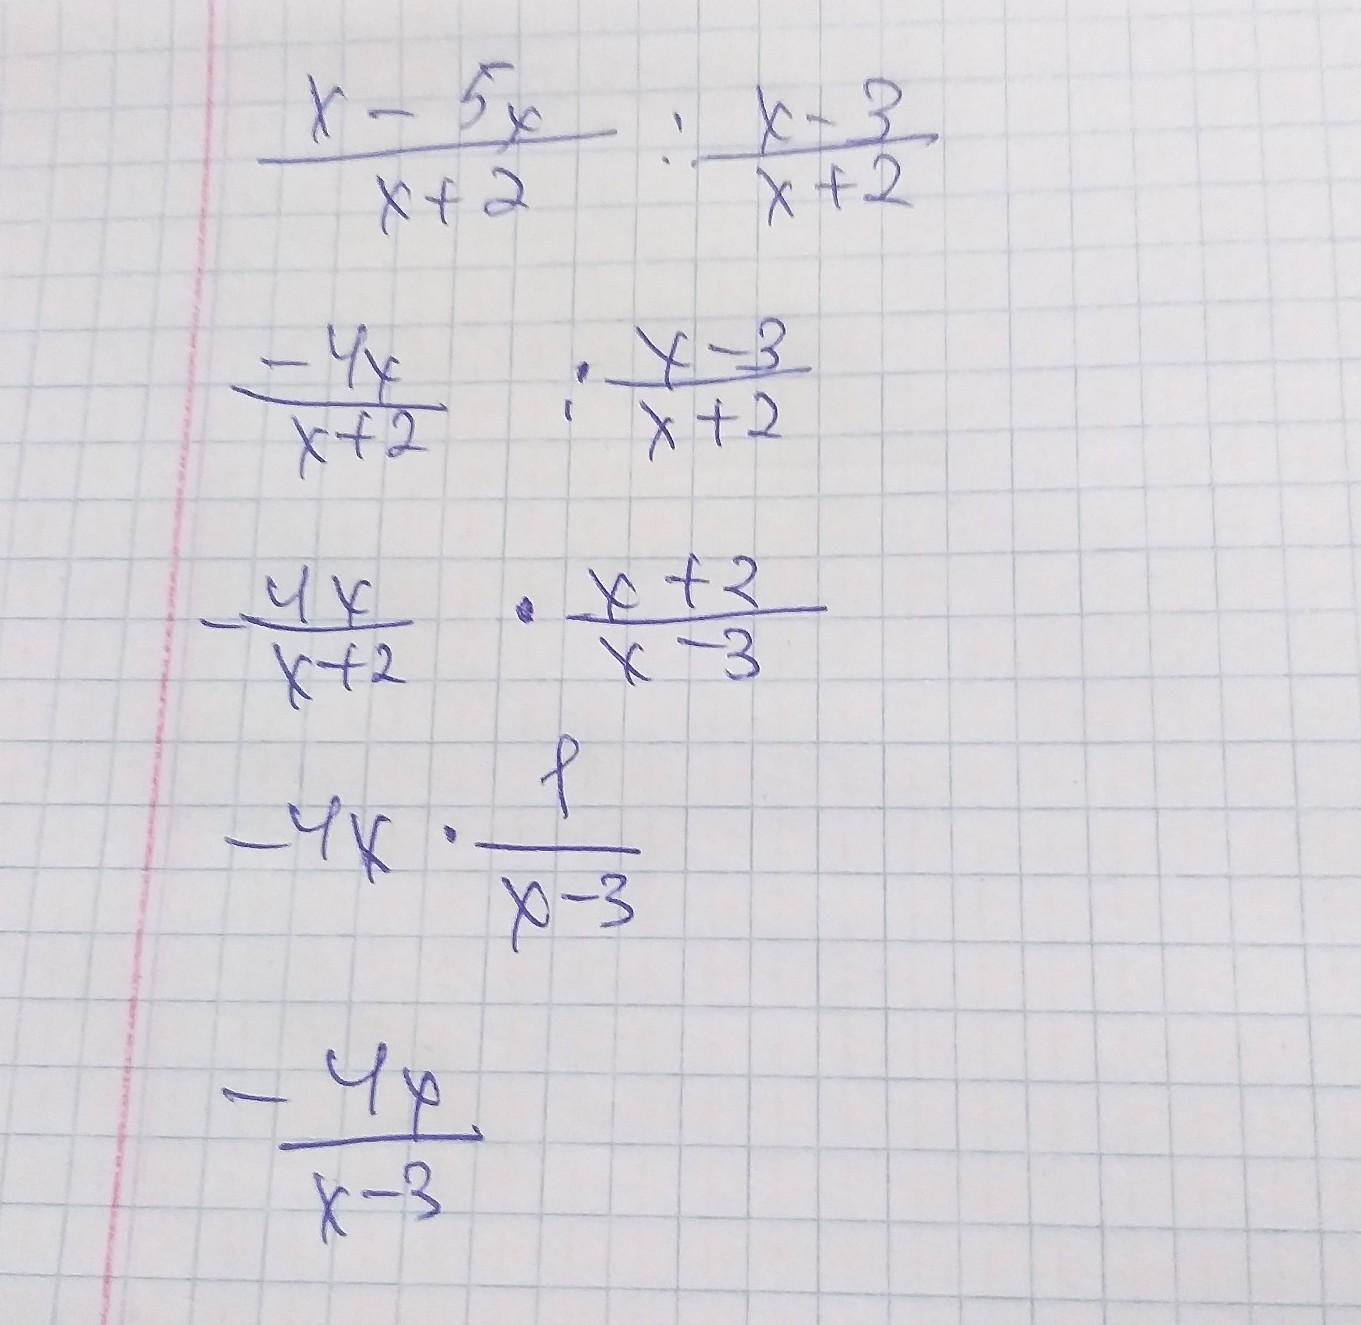 x - 5x / x+2 : x-3 / x+2
-4x / x+2 : x-3 / x+2
- 4x / x+2 · x+2 / x-3
-4x · 1 / x-3
- 4x / x-3